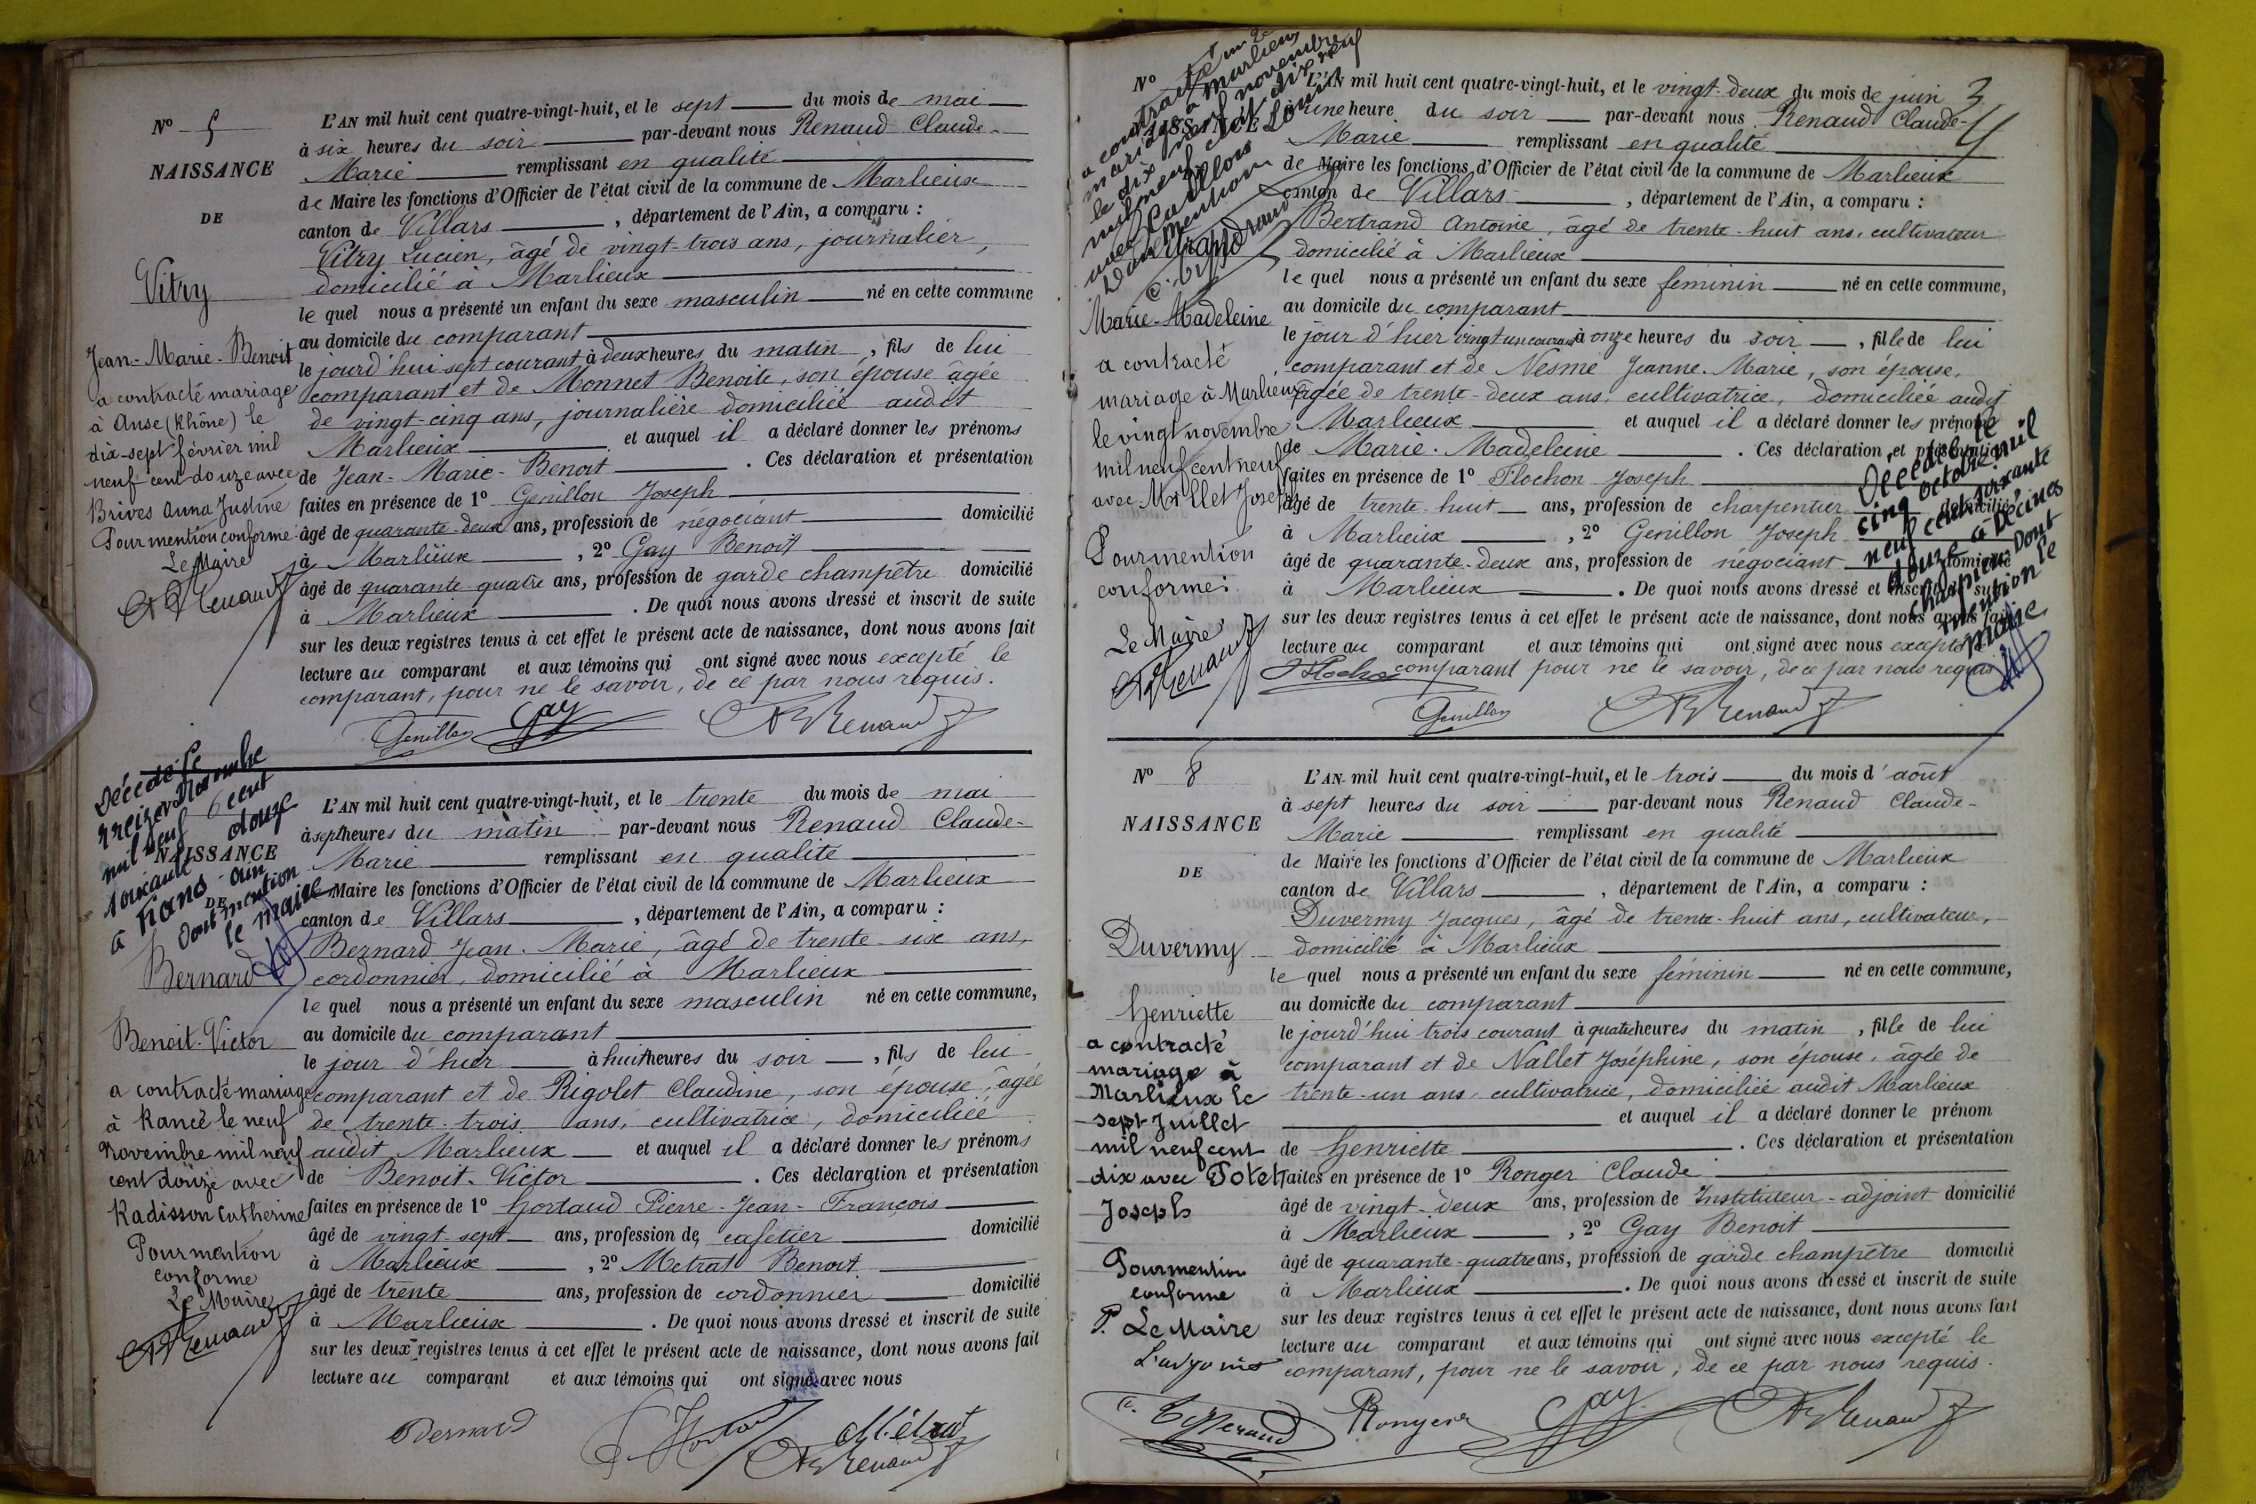 Nº 5
NAISSANCE
DE
Vitry
Jean-Marie-Benoit
a contracté mariage
à Anse (Rhône) le
dix-sept février mil
neuf cent douze avec
Brives Anna Justine
Pour mention conforme
Le Maire
Renaud
L'AN mil huit cent quatre-vingt-huit, et le sept du mois de mai
à six heures du soir par-devant nous Renaud Claude-
Marie remplissant en qualité
de Maire les fonctions d'Officier de l'état civil de la commune de Marlieux
canton de Villars, département de l'Ain, a comparu :
Vitry Lucien, âgé de vingt-trois ans, journalier,
domicilié à Marlieux
le quel nous a présenté un enfant du sexe masculin né en cette commune
au domicile du comparant
le jourd'hui sept courant à deux heures du matin, fils de lui
comparant et de Monnet Benoite, son épouse âgée
de vingt-cinq ans, journalière domiciliée audit
Marlieux et auquel il a déclaré donner les prénoms
de Jean-Marie-Benoit. Ces déclaration et présentation
faites en présence de 1º Genillon Joseph
âgé de quarante-deux ans, profession de négociant domicilié
à Marlieux, 2º Gay Benoit
âgé de quarante quatre ans, profession de garde champêtre domicilié
à Marlieux. De quoi nous avons dressé et inscrit de suite
sur les deux registres tenus à cet effet le présent acte de naissance, dont nous avons fait
lecture au comparant et aux témoins qui ont signé avec nous excepté le
comparant, pour ne le savoir, de ce par nous requis.
Genillon Gay Renaud
Décédé le
treize Novembre
mil neuf cent
soixante douze
à Hans - Ain
Dont mention
le maire
NAISSANCE
DE
Bernard
Benoit-Victor
a contracté mariage
à Rancé le neuf
Novembre mil neuf
cent douze avec
Radisson Catherine
Pour mention
conforme
Le Maire
Renaud
L'AN mil huit cent quatre-vingt-huit, et le trente du mois de mai
à sept heures du matin par-devant nous Renaud Claude-
Marie remplissant en qualité
Maire les fonctions d'Officier de l'état civil de la commune de Marlieux
canton de Villars, département de l'Ain, a comparu :
Bernard Jean-Marie, âgé de trente-six ans,
cordonnier, domicilié à Marlieux
le quel nous a présenté un enfant du sexe masculin né en cette commune,
au domicile du comparant
le jour d'hier à huit heures du soir, fils de lui
comparant et de Rigolet Claudine, son épouse, âgée
de trente-trois ans, cultivatrice, domiciliée
audit Marlieux et auquel il a déclaré donner les prénoms
de Benoit-Victor. Ces déclaration et présentation
faites en présence de 1º Hortaud Pierre-Jean-François
âgé de vingt sept ans, profession de cafetier domicilié
à Marlieux, 2º Metrat Benoit
âgé de trente ans, profession de cordonnier domicilié
à Marlieux. De quoi nous avons dressé et inscrit de suite
sur les deux registres tenus à cet effet le présent acte de naissance, dont nous avons fait
lecture au comparant et aux témoins qui ont signé avec nous
Bernard Hortaud Métrat
Renaud
Nº
a contracté
mariage à Marlieux
le dix neuf novembre
mil neuf cent dix neuf
avec Catillon Louis
Dont mention
Marie-Madeleine
a contracté
mariage à Marlieux
le vingt novembre
mil neuf cent neuf
avec Millet Joseph
Pour mention
conforme:
Le Maire
Renaud
L'AN mil huit cent quatre-vingt-huit, et le vingt-deux du mois de juin
à une heure du soir par-devant nous Renaud Claude-
Marie remplissant en qualité
de Maire les fonctions d'Officier de l'état civil de la commune de Marlieux
canton de Villars, département de l'Ain, a comparu :
Bertrand Antoine, âgé de trente-huit ans, cultivateur
domicilié à Marlieux
le quel nous a présenté un enfant du sexe féminin né en cette commune,
au domicile du comparant
le jour d'hier vingt un courant à onze heures du soir, fille de lui
comparant et de Nesme Jeanne-Marie, son épouse,
âgée de trente-deux ans, cultivatrice, domiciliée audit
Marlieux et auquel il a déclaré donner les prénoms
de Marie-Madeleine. Ces déclaration et présentation
faites en présence de 1º Flochon Joseph
âgé de trente-huit ans, profession de charpentier domicilié
à Marlieux, 2º Genillon Joseph
âgé de quarante-deux ans, profession de négociant domicilié
à Marlieux. De quoi nous avons dressé et inscrit de suite
sur les deux registres tenus à cet effet le présent acte de naissance, dont nous avons fait
lecture au comparant et aux témoins qui ont signé avec nous excepté le
comparant pour ne le savoir, de ce par nous requis
Flochon Genillon Renaud
Décédée le
cinq octobre mil
neuf cent soixante
douze à Décines
Charpieu Dont
mention le
maire
Nº 8
NAISSANCE
DE
Duvermy
Henriette
a contracté
mariage à
Marlieux le
sept Juillet
mil neuf cent
dix avec Potet
Joseph
Pour mention
conforme
P. Le Maire
L'AN mil huit cent quatre-vingt-huit, et le trois du mois d'août
à sept heures du soir par-devant nous Renaud Claude-
Marie remplissant en qualité
de Maire les fonctions d'Officier de l'état civil de la commune de Marlieux
canton de Villars, département de l'Ain, a comparu :
Duvermy Jacques, âgé de trente-huit ans, cultivateur,
domicilié à Marlieux
le quel nous a présenté un enfant du sexe féminin né en cette commune,
au domicile du comparant
le jourd'hui trois courant à quatre heures du matin, fille de lui
comparant et de Nallet Joséphine, son épouse, âgée de
trente-un ans, cultivatrice, domiciliée audit Marlieux
et auquel il a déclaré donner le prénom
de Henriette. Ces déclaration et présentation
faites en présence de 1º Ronger Claude
âgé de vingt-deux ans, profession de Instituteur-adjoint domicilié
à Marlieux, 2º Gay Benoit
âgé de quarante-quatre ans, profession de garde champêtre domicilié
à Marlieux. De quoi nous avons dressé et inscrit de suite
sur les deux registres tenus à cet effet le présent acte de naissance, dont nous avons fait
lecture au comparant et aux témoins qui ont signé avec nous excepté le
comparant, pour ne le savoir, de ce par nous requis.
Ronger Gay Renaud